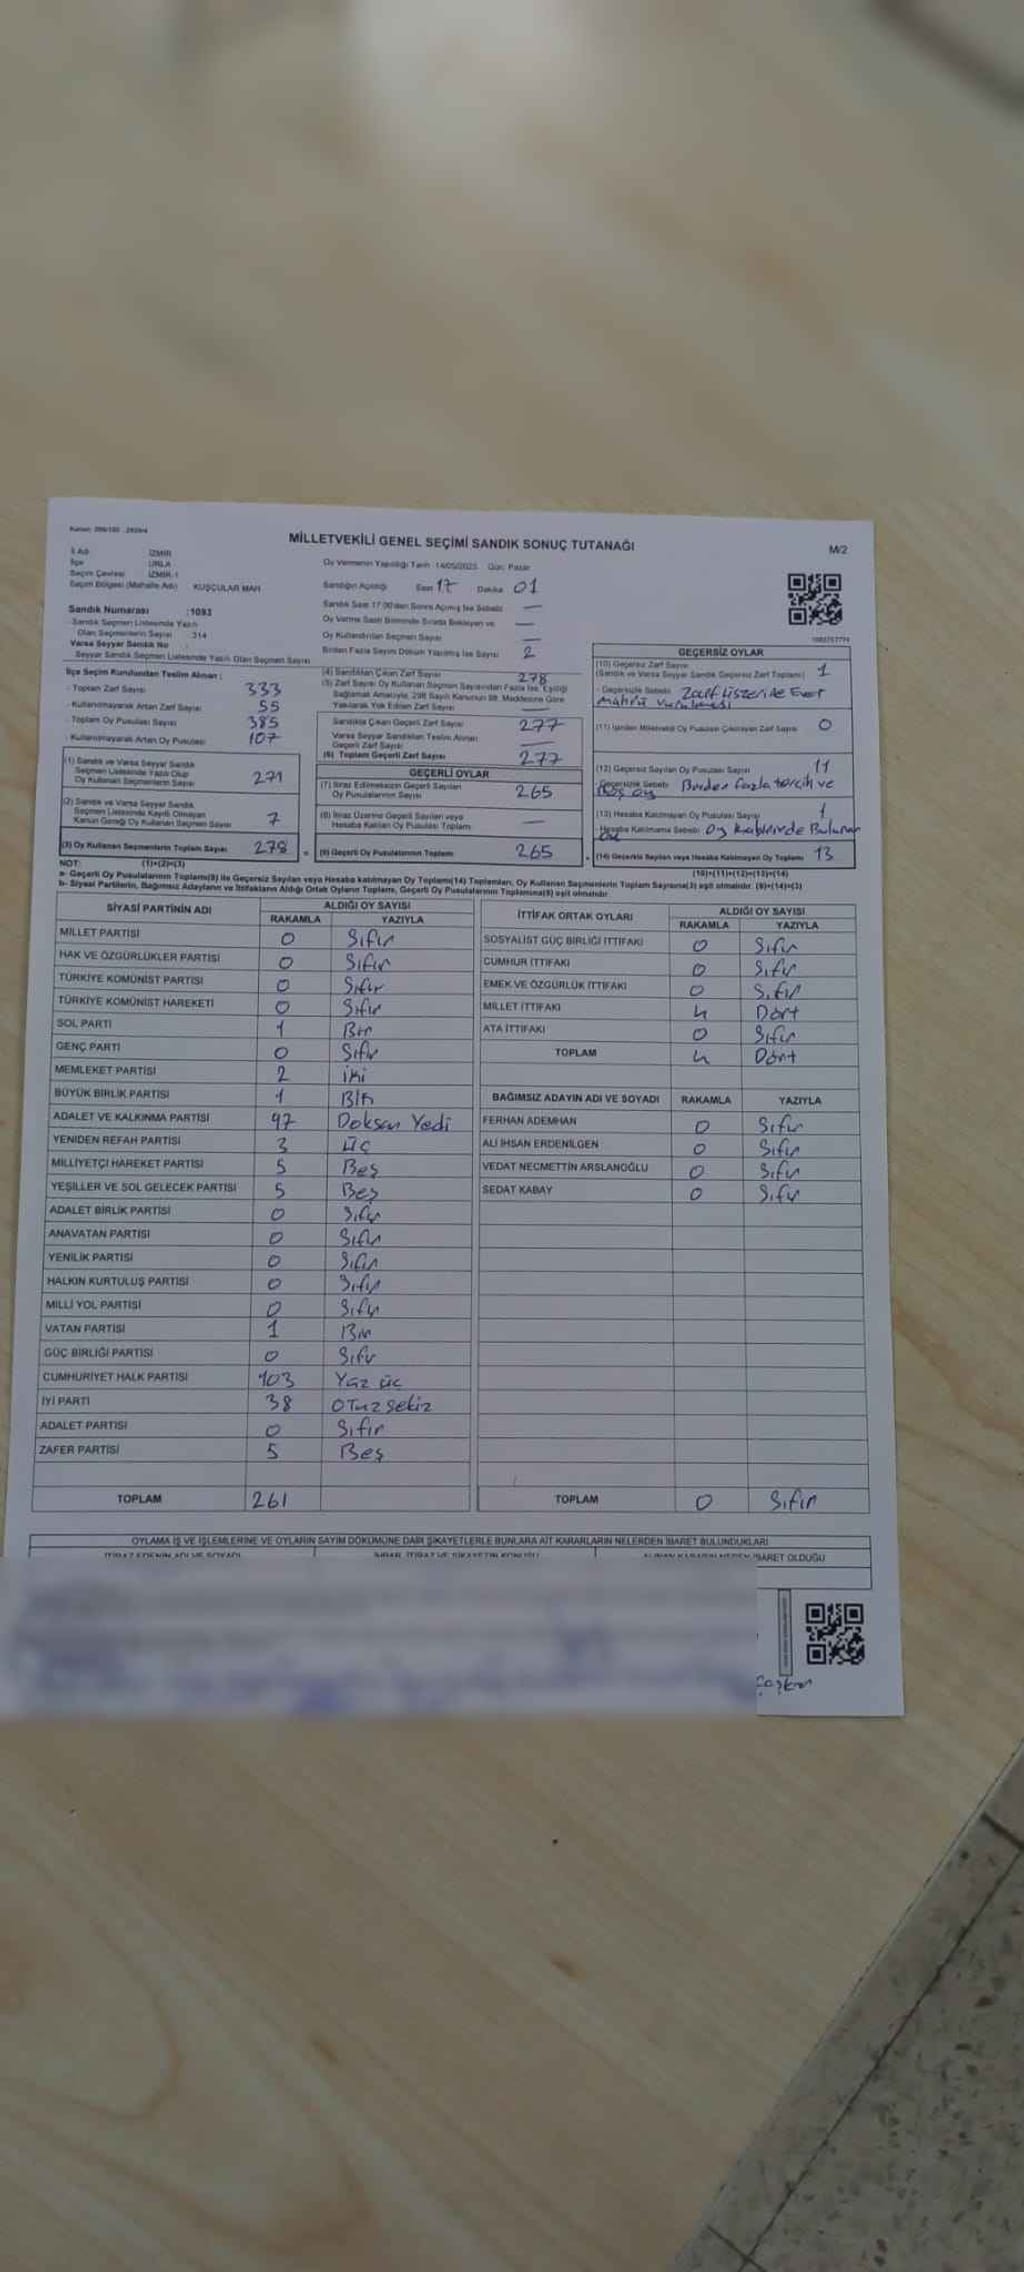 MİLLETVEKİLİ GENEL SEÇİMİ SANDIK SONUÇ TUTANAĞI
M/2
İl Adı İZMİR
İlçe URLA
Seçim Çevresi İZMİR-1
Seçim Bölgesi (Mahalle Adı) KUŞÇULAR MAH
Oy Vermenin Yapıldığı Tarih 14/05/2023 Gün: Pazar
Sandığın Açıldığı Saat 17 Dakika 01
Sandık Saat 17:00'den Sonra Açılmış İse Sebebi —
Oy Verme Saati Bitiminde Sırada Bekleyen ve —
Oy Kullandırılan Seçmen Sayısı —
Birden Fazla Sayım Döküm Yapılmış İse Sayısı 2
Sandık Numarası : 1093
Sandık Seçmen Listesinde Yazılı
Olan Seçmenlerin Sayısı : 314
Varsa Seyyar Sandık No :
Seyyar Sandık Seçmen Listesinde Yazılı Olan Seçmen Sayısı
İlçe Seçim Kurulundan Teslim Alınan :
- Toplam Zarf Sayısı 333
- Kullanılmayarak Artan Zarf Sayısı 55
- Toplam Oy Pusulası Sayısı 385
- Kullanılmayarak Artan Oy Pusulası 107
(1) Sandık ve Varsa Seyyar Sandık
Seçmen Listesinde Yazılı Olup
Oy Kullanan Seçmenlerin Sayısı 271
(2) Sandık ve Varsa Seyyar Sandık
Seçmen Listesinde Kayıtlı Olmayan
Kanun Gereği Oy Kullanan Seçmen Sayısı 7
(3) Oy Kullanan Seçmenlerin Toplam Sayısı 278
(4) Sandıktan Çıkan Zarf Sayısı 278
(5) Zarf Sayısı Oy Kullanan Seçmen Sayısından Fazla İse, Eşitliği
Sağlamak Amacıyla, 298 Sayılı Kanunun 98. Maddesine Göre
Yakılarak Yok Edilen Zarf Sayısı —
Sandıkta Çıkan Geçerli Zarf Sayısı 277
Varsa Seyyar Sandıktan Teslim Alınan
Geçerli Zarf Sayısı —
(6) Toplam Geçerli Zarf Sayısı 277
GEÇERLİ OYLAR
(7) İtiraz Edilmeksizin Geçerli Sayılan
Oy Pusulalarının Sayısı 265
(8) İtiraz Üzerine Geçerli Sayılan veya
Hesaba Katılan Oy Pusulası Toplamı —
(9) Geçerli Oy Pusulalarının Toplamı 265
GEÇERSİZ OYLAR
(10) Geçersiz Zarf Sayısı
(Sandık ve Varsa Seyyar Sandık Geçersiz Zarf Toplamı) 1
- Geçersizlik Sebebi: Zarf üszerile Evet
mahrü vurulmadı
(11) İçinden Milletvekili Oy Pusulası Çıkmayan Zarf Sayısı 0
(12) Geçersiz Sayılan Oy Pusulası Sayısı 11
Geçersizlik Sebebi: Birden fazla tercih ve
Boş oy
(13) Hesaba Katılmayan Oy Pusulası Sayısı 1
Hesaba Katılmama Sebebi:
(14) Geçersiz Sayılan veya Hesaba Katılmayan Oy Toplamı 13
NOT: (1)+(2)=(3) (10)+(11)+(12)+(13)=(14)
a- Geçerli Oy Pusulalarının Toplamı(9) ile Geçersiz Sayılan veya Hesaba katılmayan Oy Toplamı(14) Toplamları, Oy Kullanan Seçmenlerin Toplam Sayısına(3) eşit olmalıdır. (9)+(14)=(3)
b- Siyasi Partilerin, Bağımsız Adayların ve İttifakların Aldığı Ortak Oyların Toplamı, Geçerli Oy Pusulalarının Toplamına(9) eşit olmalıdır.
SİYASİ PARTİNİN ADI ALDIĞI OY SAYISI
RAKAMLA YAZIYLA
MİLLET PARTİSİ 0 Sıfır
HAK VE ÖZGÜRLÜKLER PARTİSİ 0 Sıfır
TÜRKİYE KOMÜNİST PARTİSİ 0 Sıfır
TÜRKİYE KOMÜNİST HAREKETİ 0 Sıfır
SOL PARTİ 1 Bir
GENÇ PARTİ 0 Sıfır
MEMLEKET PARTİSİ 2 iki
BÜYÜK BİRLİK PARTİSİ 1 Bir
ADALET VE KALKINMA PARTİSİ 97 Doksan Yedi
YENİDEN REFAH PARTİSİ 3 üç
MİLLİYETÇİ HAREKET PARTİSİ 5 Beş
YEŞİLLER VE SOL GELECEK PARTİSİ 5 Beş
ADALET BİRLİK PARTİSİ 0 Sıfır
ANAVATAN PARTİSİ 0 Sıfır
YENİLİK PARTİSİ 0 Sıfır
HALKIN KURTULUŞ PARTİSİ 0 Sıfır
MİLLİ YOL PARTİSİ 0 Sıfır
VATAN PARTİSİ 1 Bir
GÜÇ BİRLİĞİ PARTİSİ 0 Sıfır
CUMHURİYET HALK PARTİSİ 103 Yüz üç
İYİ PARTİ 38 Otuz sekiz
ADALET PARTİSİ 0 Sıfır
ZAFER PARTİSİ 5 Beş
TOPLAM 261
İTTİFAK ORTAK OYLARI ALDIĞI OY SAYISI
RAKAMLA YAZIYLA
SOSYALİST GÜÇ BİRLİĞİ İTTİFAKI 0 Sıfır
CUMHUR İTTİFAKI 0 Sıfır
EMEK VE ÖZGÜRLÜK İTTİFAKI 0 Sıfır
MİLLET İTTİFAKI 4 Dört
ATA İTTİFAKI 0 Sıfır
TOPLAM 4 Dört
BAĞIMSIZ ADAYIN ADI VE SOYADI RAKAMLA YAZIYLA
FERHAN ADEMHAN 0 Sıfır
ALİ İHSAN ERDENİLGEN 0 Sıfır
VEDAT NECMETTİN ARSLANOĞLU 0 Sıfır
SEDAT KABAY 0 Sıfır
TOPLAM 0 Sıfır
OYLAMA İŞ VE İŞLEMLERİNE VE OYLARIN SAYIM DÖKÜMÜNE DAİR ŞİKAYETLERLE BUNLARA AİT KARARLARIN NELERDEN İBARET BULUNDUKLARI